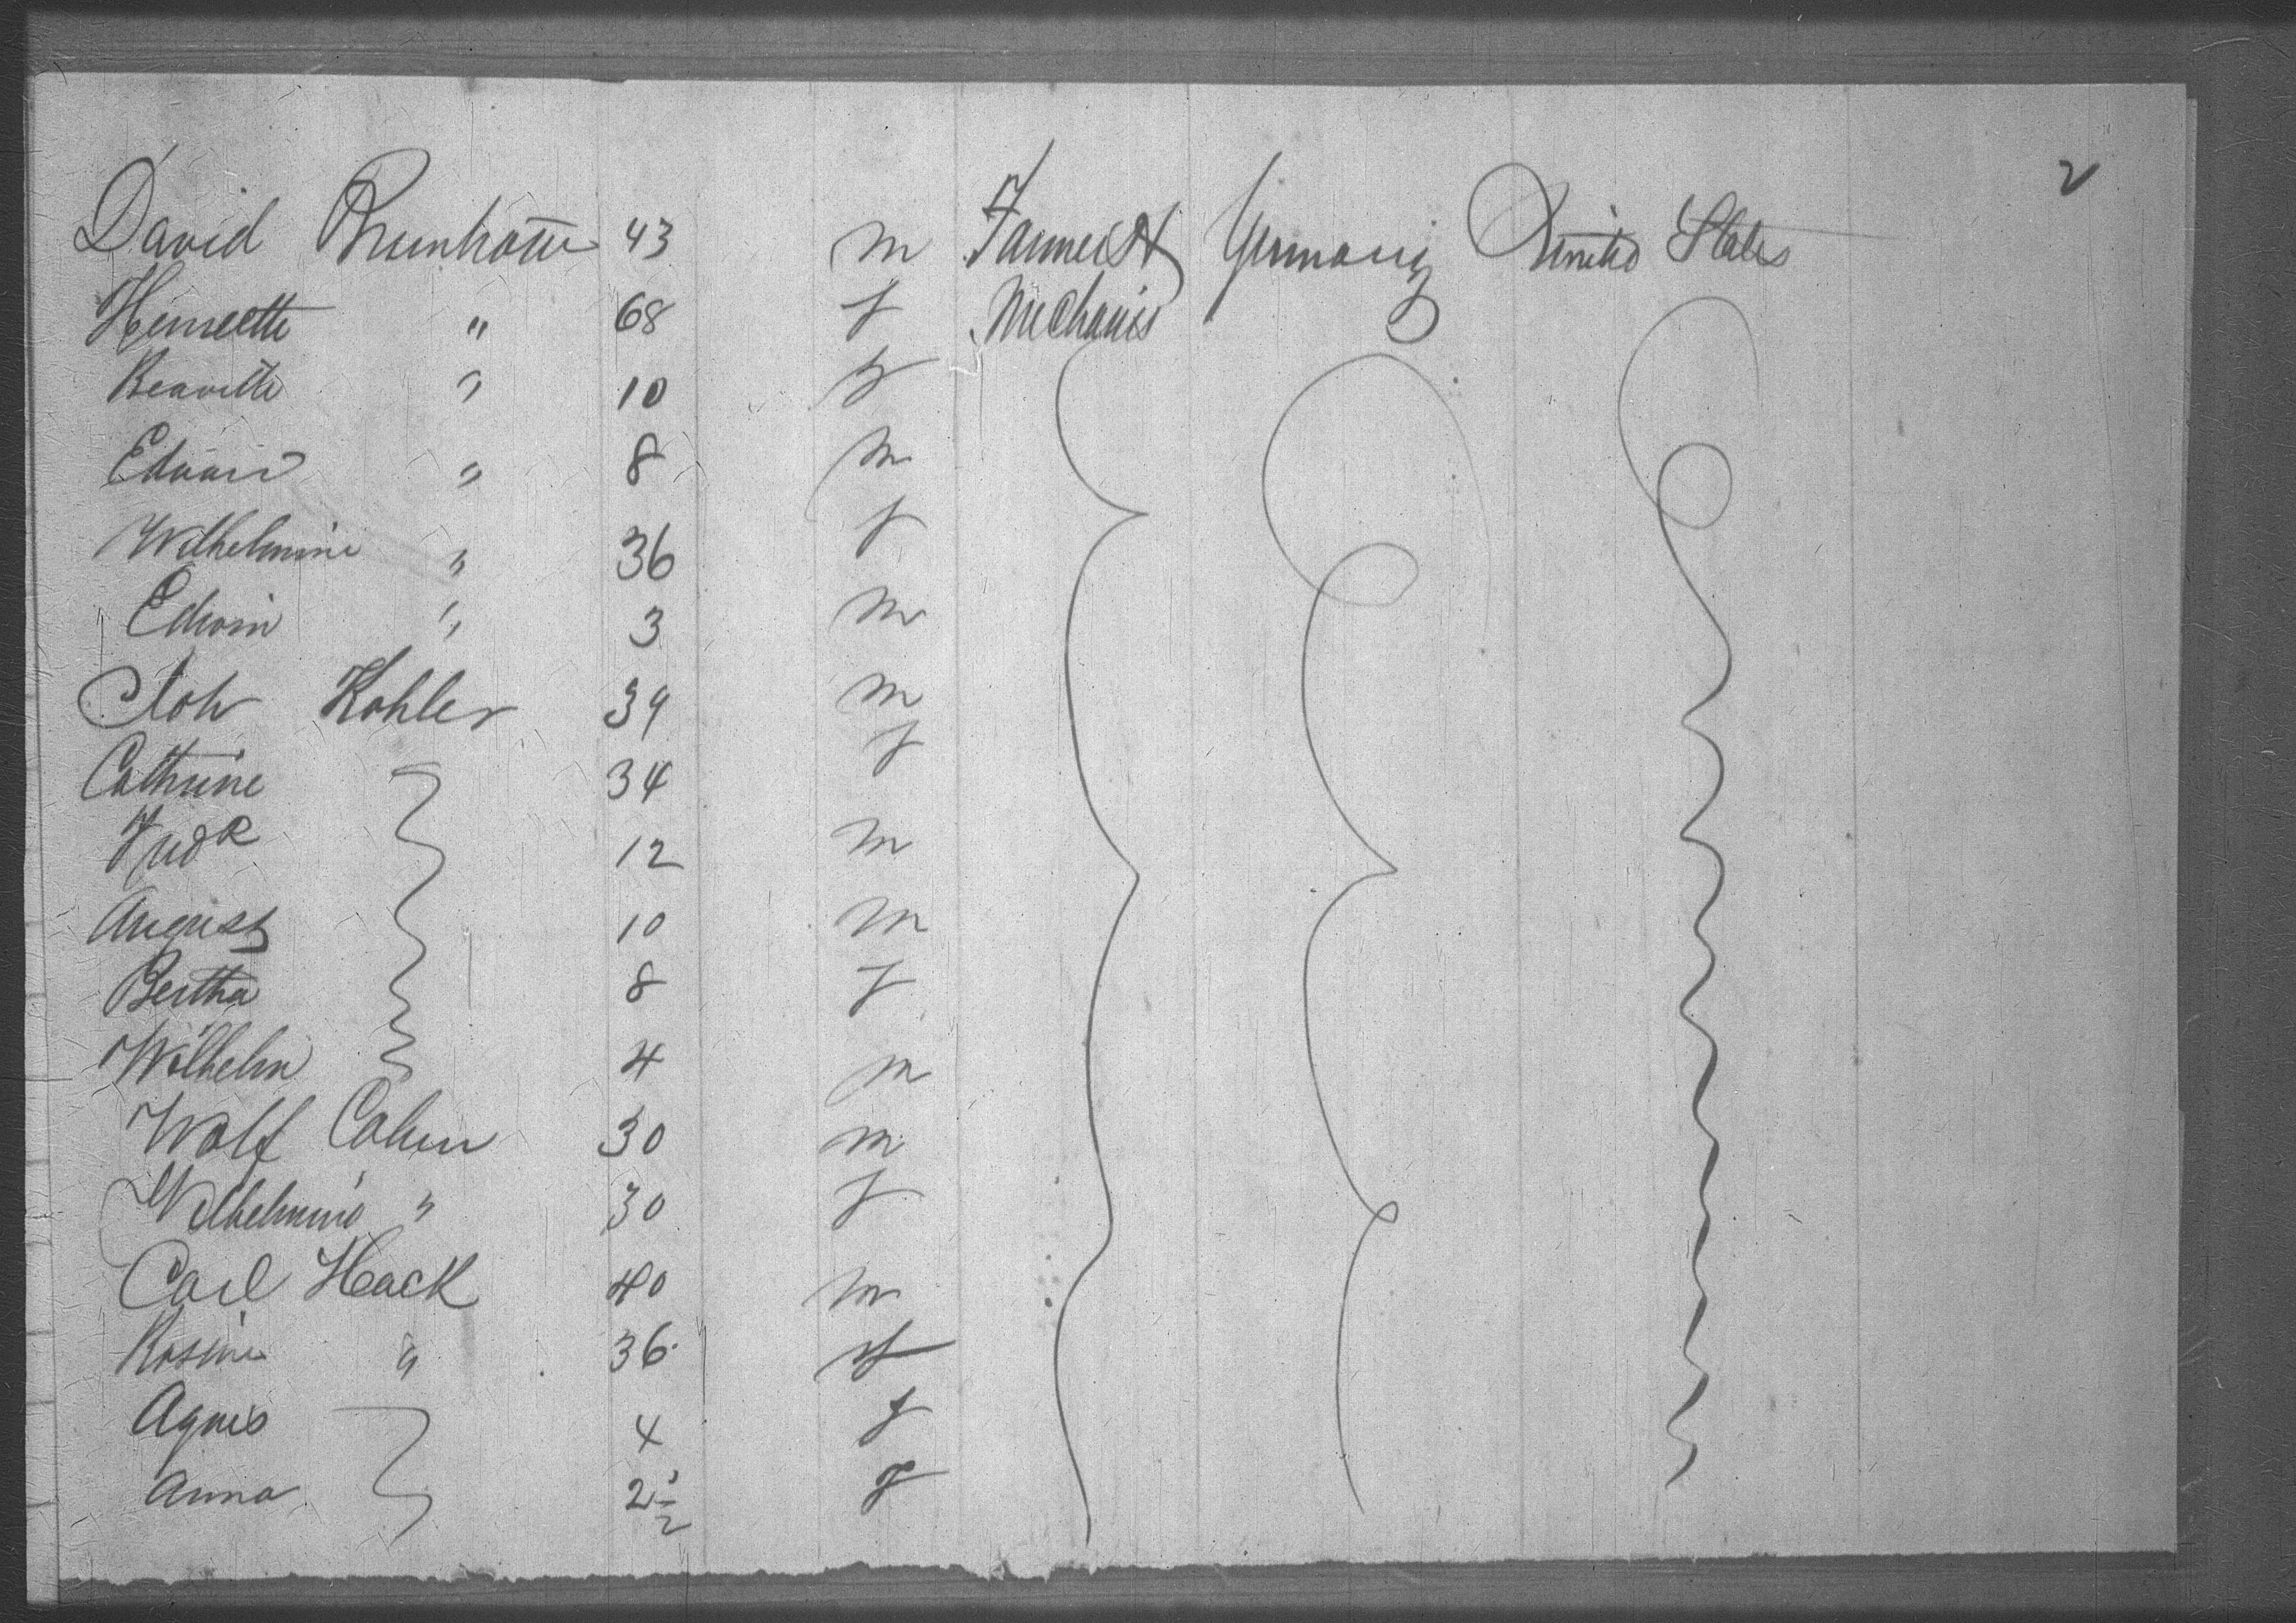 2
David 43 m Farmers & Germany United States
Henriette " 68 f Mechanics
" 10 f
Eduard " 8 m
Wilhelmine " 36 f
Edwin " 3 m
Joh Kohler 39 m
Cathrine 34 f
Fredk 12 m
August 10 m
Bertha 8 f
Wilhelm 4 m
Wolf Cahen 30 m
Wilhelmine " 30 f
Carl Hack 40 m
Rosine " 36 f
Agnes 4 f
Anna 2 1/2 f